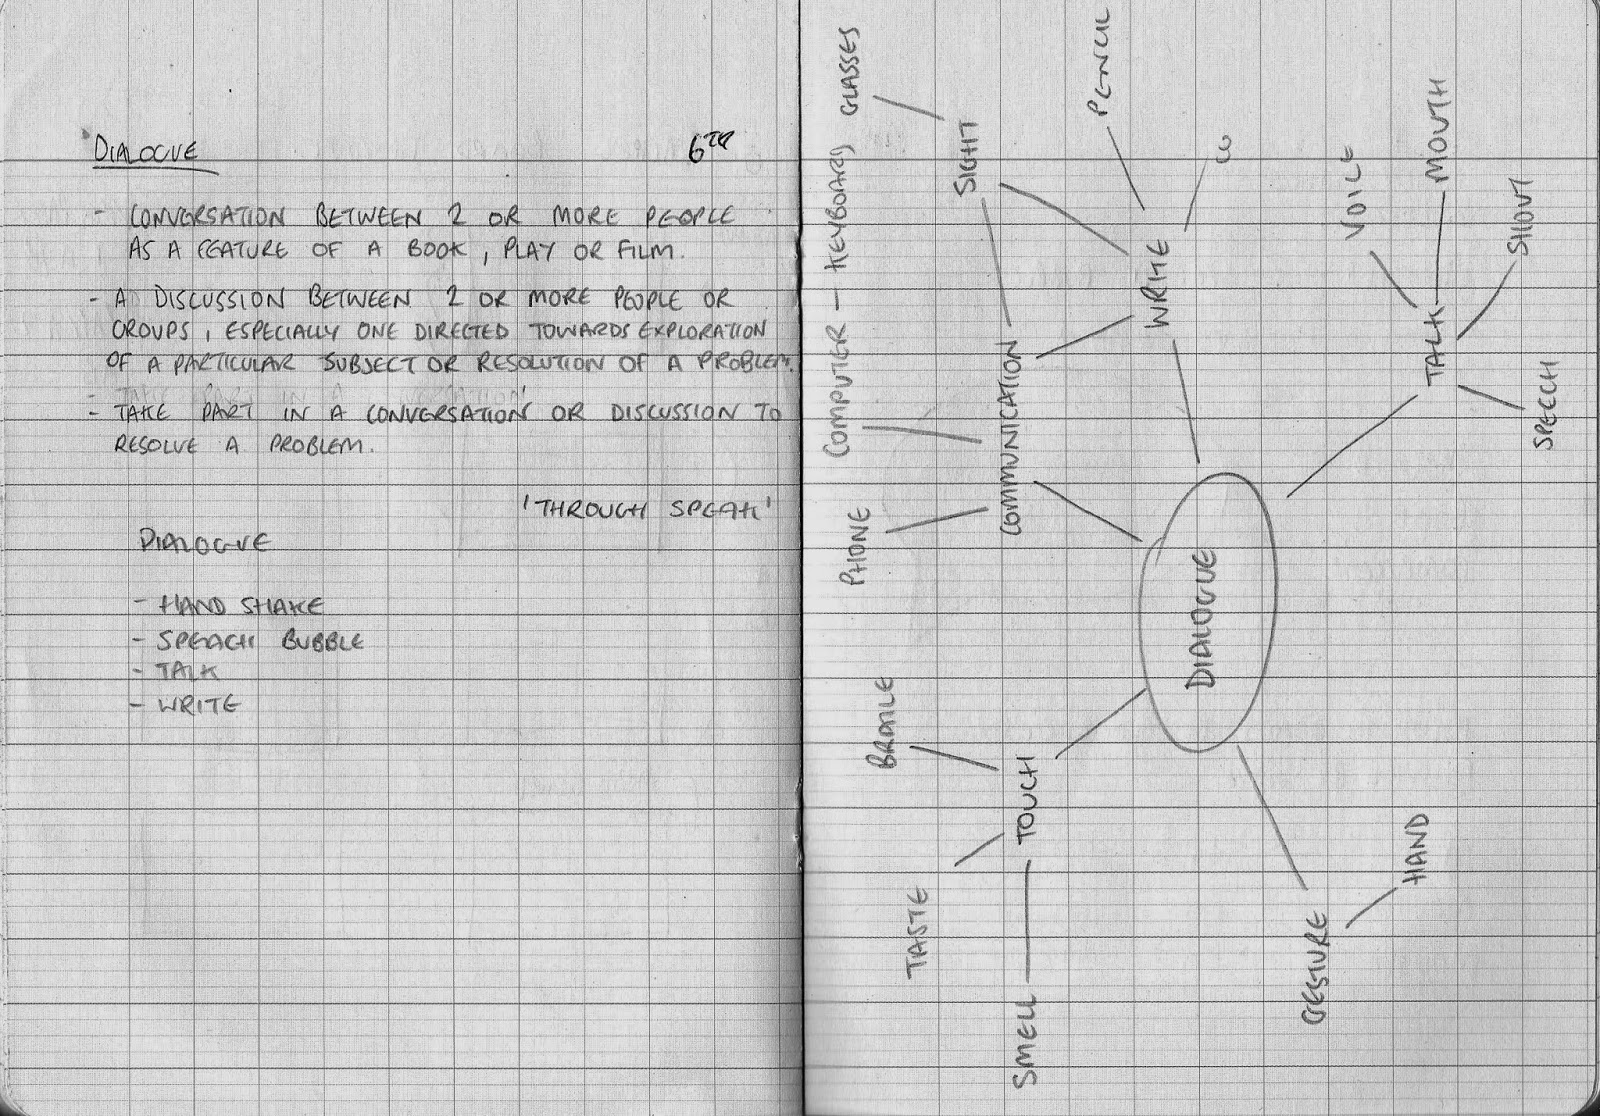 DIALOGUE 6TH
- CONVERSATION BETWEEN 2 OR MORE PEOPLE
AS A FEATURE OF A BOOK, PLAY OR FILM.
- A DISCUSSION BETWEEN 2 OR MORE PEOPLE OR
GROUPS, ESPECIALLY ONE DIRECTED TOWARDS EXPLORATION
OF A PARTICULAR SUBJECT OR RESOLUTION OF A PROBLEM.
- TAKE PART IN A CONVERSATION OR DISCUSSION TO
RESOLVE A PROBLEM.
'THROUGH SPEAK'
DIALOGUE
- HAND SHAKE
- SPEACH BUBBLE
- TALK
- WRITE
GLASSES
KEYBOARD
COMPUTER
PHONE
BRAILE
TASTE
SIGHT
COMMUNICATION
TOUCH
SMELL
PENCIL
WRITE
DIALOGUE
GESTURE
HAND
VOICE
MOUTH
TALK
SHOUT
SPEECH